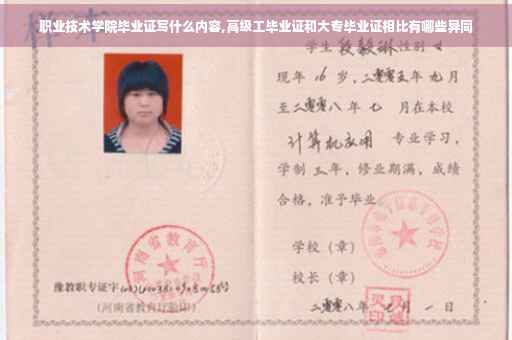 职业技术学院毕业证写什么内容,高级工毕业证和大专毕业证相比有哪些异同
学生 性别 女
现年 16 岁,二零零五年 九月
至二零零八年 七 月在本校
计算机应用 专业学习,
学制 三年,修业期满,成绩
合格,准予毕业
学校(章)
校长(章)
二零零八年 月 一 日
河南省教育厅
豫教职专证字
(河南省教育厅验印)